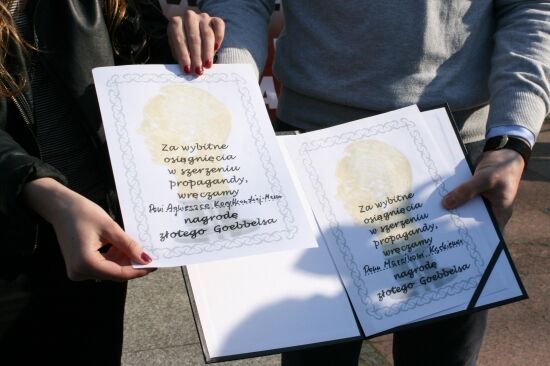 Za wybitne
osiągnięcia
w szerzeniu
propagandy,
wręczamy
Pani Agnieszce
nagrodę
złotego Goebbelsa
Za wybitne
osiągnięcia
w szerzeniu
propagandy,
wręczamy
Panu
nagrodę
złotego Goebbelsa